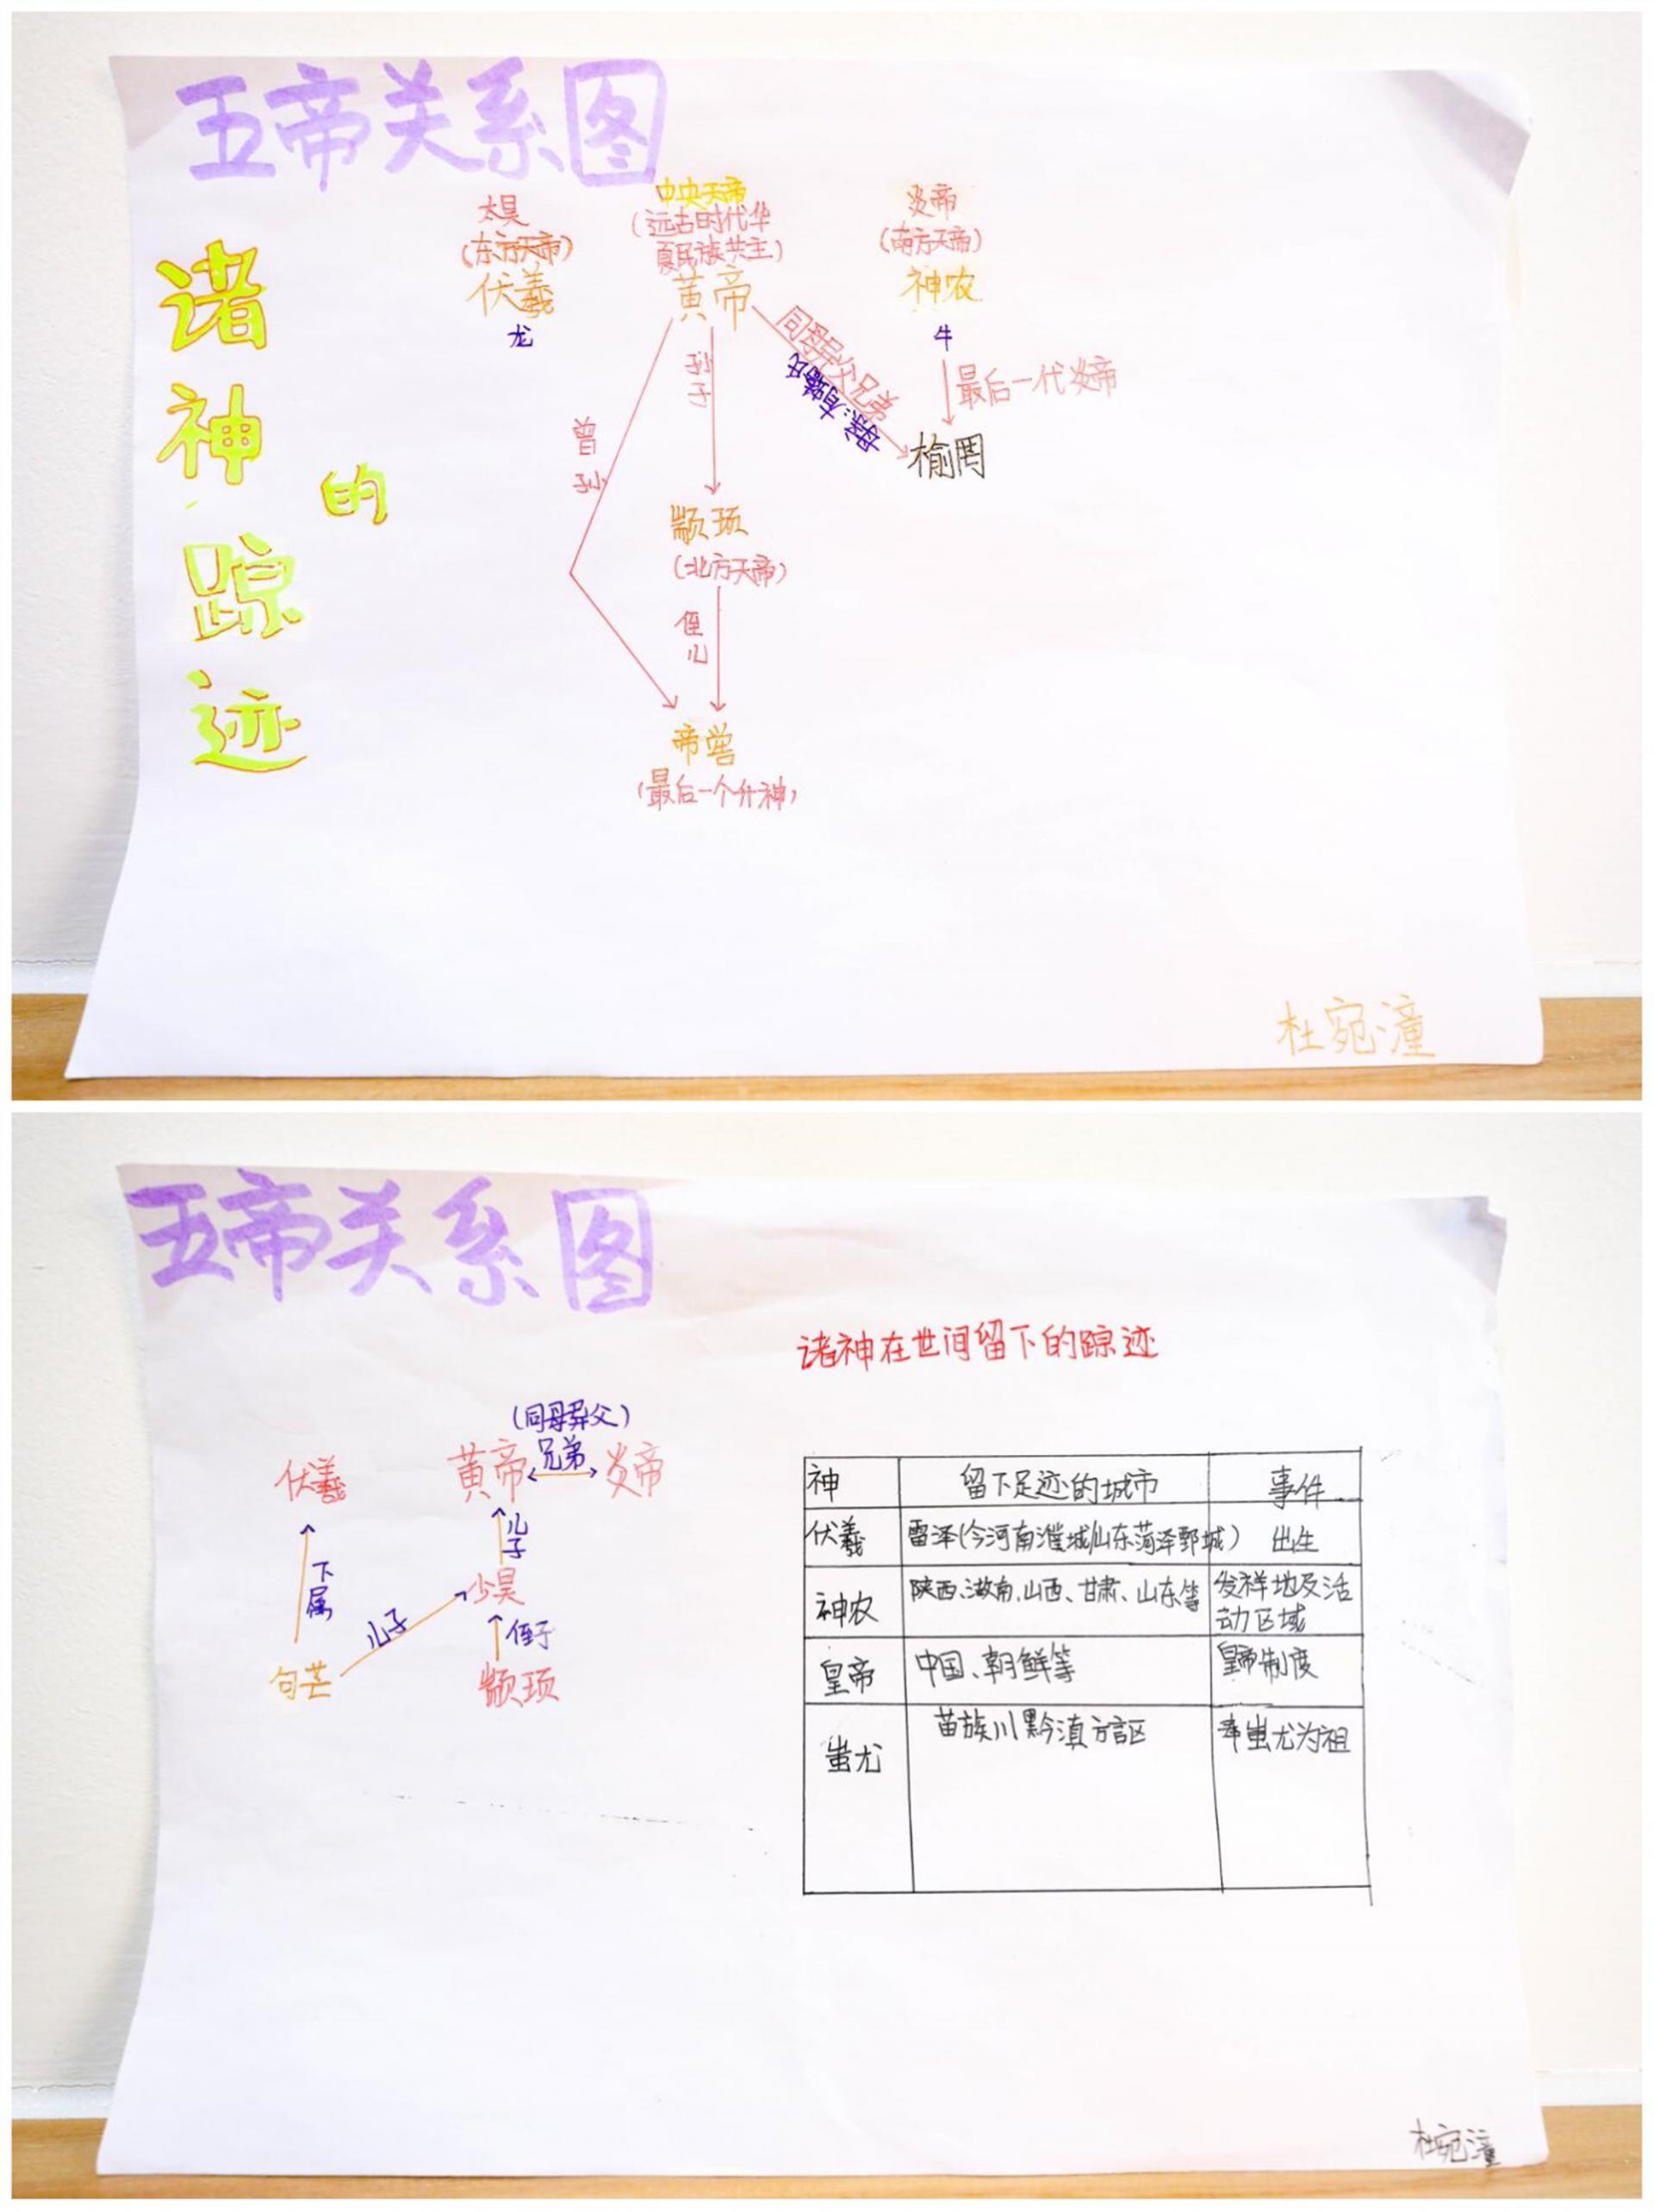 五帝关系图
诸神的踪迹
太昊
(东方天帝)
伏羲
龙
中央天帝
(远古时代华
夏民族共主)
黄帝
炎帝
(南方天帝)
神农
牛
最后一代炎帝
同母异父兄弟
母系:有蟜氏
榆罔
孙子
曾孙
颛顼
(北方天帝)
侄儿
帝喾
(最后一个升神)
杜宛潼
五帝关系图
诸神在世间留下的踪迹
(同母异父)
伏羲
黄帝
兄弟
炎帝
下属
儿子
少昊
儿子
侄子
句芒
颛顼
神 留下足迹的城市 事件
伏羲 雷泽(今河南濮城/山东菏泽鄄城) 出生
神农 陕西、湖南、山西、甘肃、山东等 发祥地及活
动区域
皇帝 中国、朝鲜等 皇帝制度
蚩尤 苗族川黔滇方言区 奉蚩尤为祖
杜宛潼